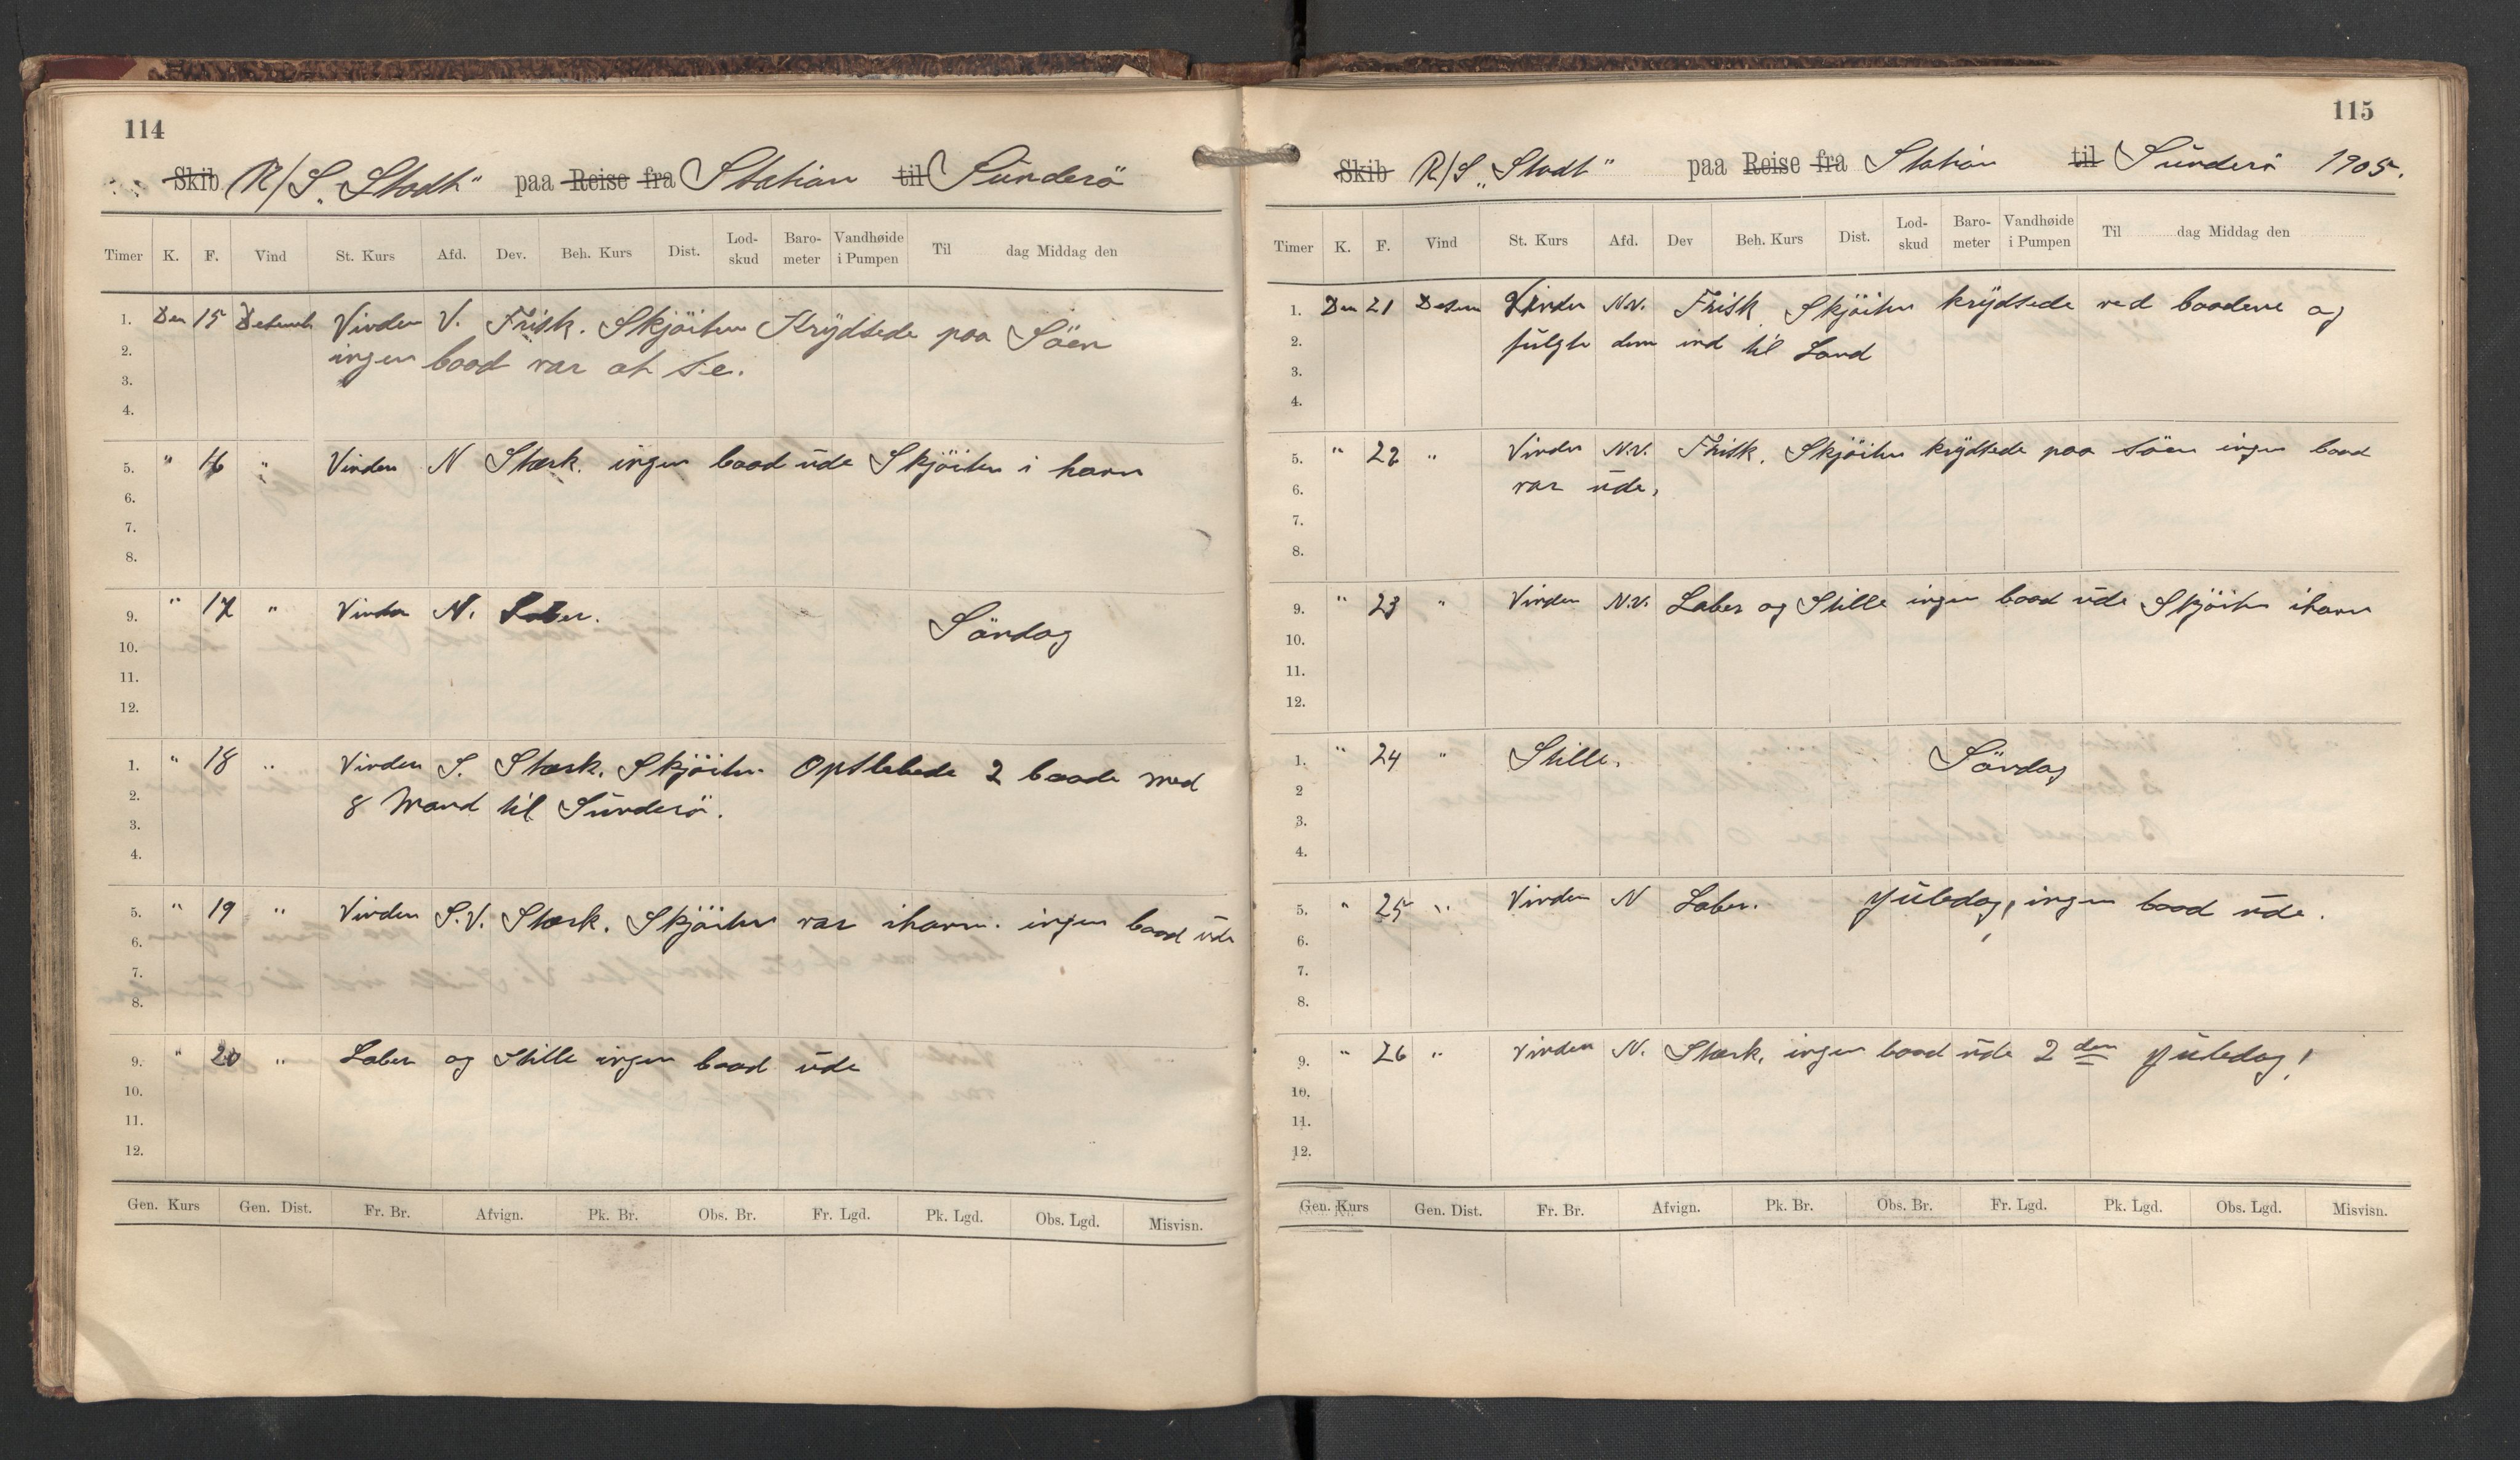 114
Skib R/S „Stadt" paa Reise fra Station til Sünderö
Timer K. F. Vind St. Kurs Afd. Dev. Beh. Kurs Dist. Lod-skud Baro-meter Vandhøide i Pumpen Til dag Middag den
1. Den 15 Desemb Vinden V. Frisk. Skjöiten Krÿdsede paa Söen
2. ingen baad var at se.
3.
4.
5. " 16 " Vinden N Stærk. ingen baad üde Skjöiten i havn
6.
7.
8.
9. " 17 " Vinden N. Laber.
10. Söndag
11.
12.
1. " 18 " Vinden S. Stærk. Skjöiten Opslebede 2 baade med
2. 8 Mand til Sünderö.
3.
4.
5. " 19 " Vinden S.V. Stærk. Skjöiten var ihavn. ingen baad üde
6.
7.
8.
9. " 20 " Laber og Stille ingen baad üde
10.
11.
12.
Gen. Kurs Gen. Dist. Fr. Br. Afvign. Pk. Br. Obs. Br. Fr. Lgd. Pk. Lgd. Obs. Lgd. Misvisn.
115
Skib R/S „Stadt" paa Reise fra Station til Sünderö 1905.
Timer K. F. Vind St. Kurs Afd. Dev Beh. Kurs Dist. Lod-skud Baro-meter Vandhøide i Pumpen Til dag Middag den
1. Den 21 Desem Vinden N.V. Frisk Skjöiten krÿdsede ved baadene og
2. fülgte dem ind til Land
3.
4.
5. " 22 " Vinden N.V. Frisk. Skjöiten krÿdsede paa söen ingen baad
6. var üde.
7.
8.
9. " 23 " Vinden N.V. Laber og Stille ingen baad üde Skjöiten ihavn
10.
11.
12.
1. " 24 " Stille. Söndag
2
3.
4.
5. " 25 " Vinden N Laber. Jüledag, ingen baad üde.
6.
7.
8.
9. " 26 " Vinden N. Stærk, ingen baad üde 2den Jüledag!
10.
11.
12.
Gen. Kurs Gen. Dist. Fr. Br. Afvign. Pk. Br. Obs. Br. Fr. Lgd. Pk. Lgd. Obs. Lgd. Misvisn.